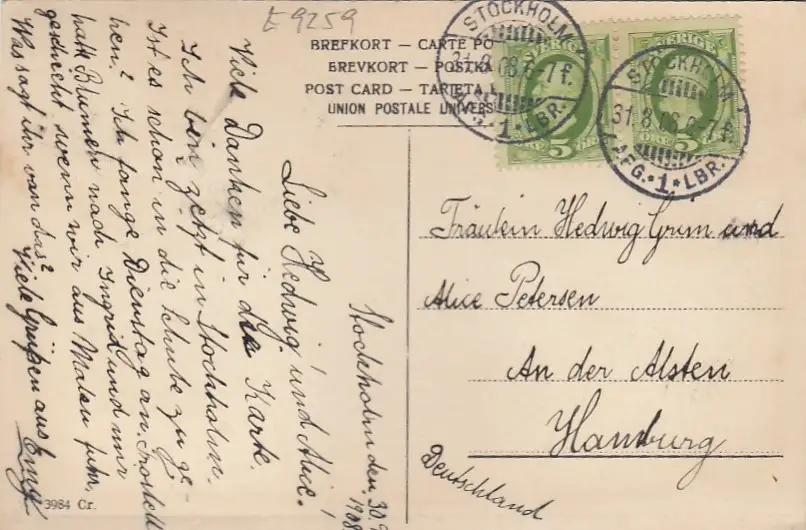 E 9259
BREFKORT — CARTE PO
BREVKORT — POSTKA
POST CARD — TARJETA
UNION POSTALE UNIVERS
STOCKHOLM
31.8.08.6-7 f.
1 ★ LBR.
SVERIGE
5 ÖRE
STOCKHOLM
31.8.08.6-7 f.
AFG. ★ 1 ★ LBR.
SVERIGE
ÖRE 5
Fräulein Hedwig Grim und
Alice Petersen
An der Alsten
Hamburg
Deutschland
Stockholm den 30
1908
Liebe Hedwig und Alice!
Viele Danken für die Karte.
Ich bin jetzt in Stockholm.
Ist es schon in die Schule zu ge-
hen? Ich fange Dienstag an.
hatt Blumen nach Ingrid und mir
geschickt wenn wir aus Malen fuhr,
Was sagt ihr van das? Viele Grüßen aus
3984 Cr.